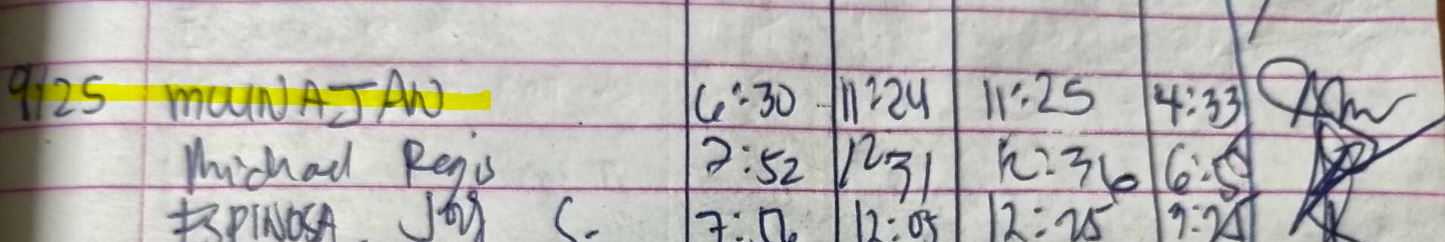 9/25 MUNAJAN 6:30 11:24 11:25 4:33
Michael Regis 7:52 1231 12:36
ESPINOSA, Joy C. 12:05 12:25